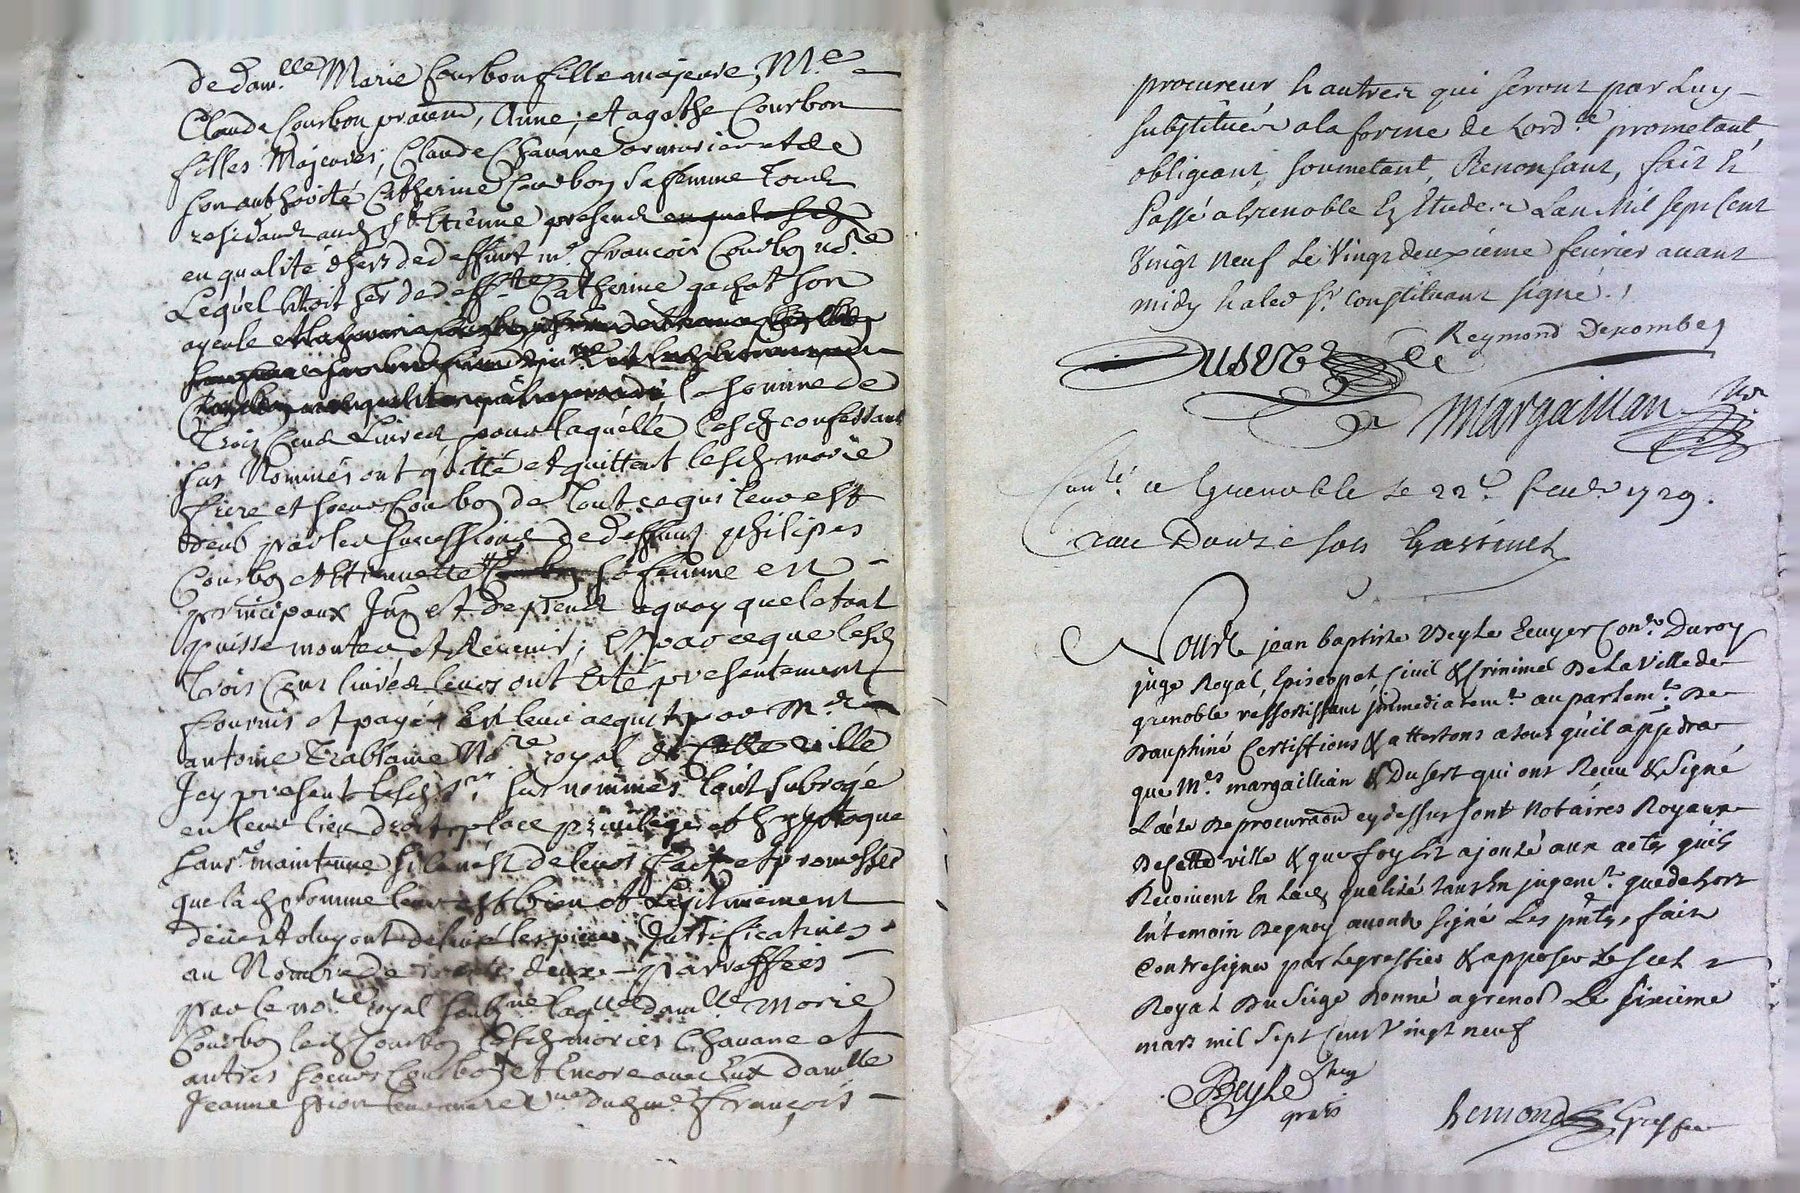 de dam.lle Marie Courbon fille majeure, M.e
Claude Courbon praticien, Anne, et agathe Courbon
filles Majeures, Claude Chavane armurier et de
son authorité Catherine Courbon sa femme Tous
residants aud. St Etienne presents
en qualité d'hers de deffunt m.e françois Courbon no.re
Lequel Etoit her de deff.te Catherine gachat son
ayeule
la somme de
Trois Cents Livres pour laquelle lesd. confessants
sus Nommés ont quitté et quittent lesd. marie
frere et soeurs Courbon de Tout ce qui leur est
deub par les successions de deffunts philipes
Courbon et Hennette sa femme en
principaux Int. et depends a quoy que le tout
puisse monter et Revenir, Et par ce que lesd.
Trois Cent livres leurs ont Eté presentement
fournis et payés En leur acquit par M.e
antoine Trablaine No.re royal de Cette ville
Icy present lesd. Srs sus nommés l'ont subrogé
en leur lieu droit place privilege et hypoteque
sans maintenue si le nest de leurs faits et promesses
que lad. somme leur est bien et Legitimement
deüe et duy ont delivré les pieces Justificatives
au Nombre de trente deux parraffées
par le no.re royal soub.ne laq.lle dam.lle Marie
Courbon led. Courbon lesd. mariés Chavane et
autres soeurs Courbon et Encore avec Eux dam.lle
Jeanne leur mere v.ve dud. m.e françois
procureur & autres qui seront par Luy
substitués a la forme de Lord.ce prometant
obligeant, soumetant, Renonsant, fait &
Passé a Grenoble Ez Etudes Lan Mil sept Cent
Vingt Neuf Le Vingt deuxieme fevrier avant
midy & a led. Sr Constituant signé.
Reymond Decombes
Dusert
Margaillan No.re
Con.lé a Grenoble le 22.e feur 1729.
Reçu Douze sols Gastinel
Nous jean baptiste Beyle Ecuyer Con.er Du roy
juge Royal, Episcopal Civil & Criminel De la Ville de
grenoble ressortissant immediatem.t au parlem.t De
Dauphiné Certiffions & attestons a tous qu'il app.dra
que M.es margaillian & Dusert qui ont Receu & Signé
L'acte De procuraon cy dessus sont Notaires Royaux
De Cette ville & que foy Est ajouté aux actes qu'ils
Recoivent En lad. qualité tant En jugem.t que dehors
En temoin De quoy avons signé Les p.ntes, fait
Contresigner par Le greffier & apposer Le scel
Royal Du Siege Donné a grenob. Le sixieme
mars mil sept Cent vingt neuf
Beyle juge
gratis
Remond Greffier